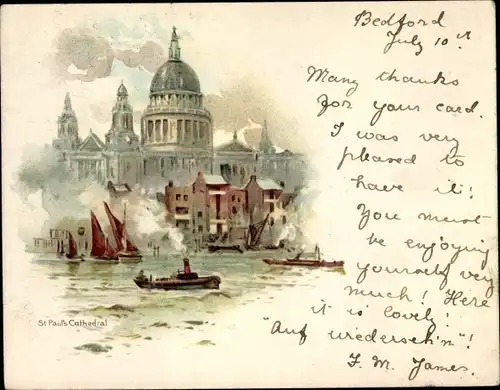 Bedford
July 10th
Many thanks
for your card.
I was very
pleased to
have it!
You must
be enjoying
yourself very
much! Here
it is lovely!
"Auf wiederseh'n"!
F. M. James.
St Paul's Cathedral